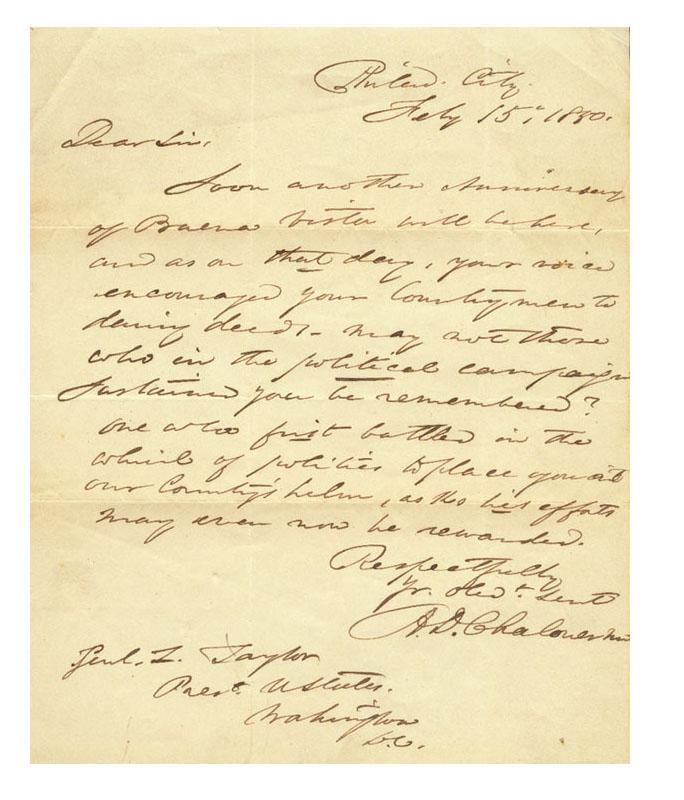 Philad. City.
Feby 15, 1850.
Dear Sir,
Soon another Anniversary
of Buena Vista will be here,
and as on that day, your voice
encouraged your Countrymen to
daring deeds - may not those
who in the political campaign
sustained you be remembered?
one who first battled in the
whirl of politics to place you at
our Country's helm, asks his efforts
may even now be rewarded.
Respectfully
Yr. Obedt. Servt
A.D. Chaloner
Genl. Z. Taylor
Prest. U States.
Washington
D.C.